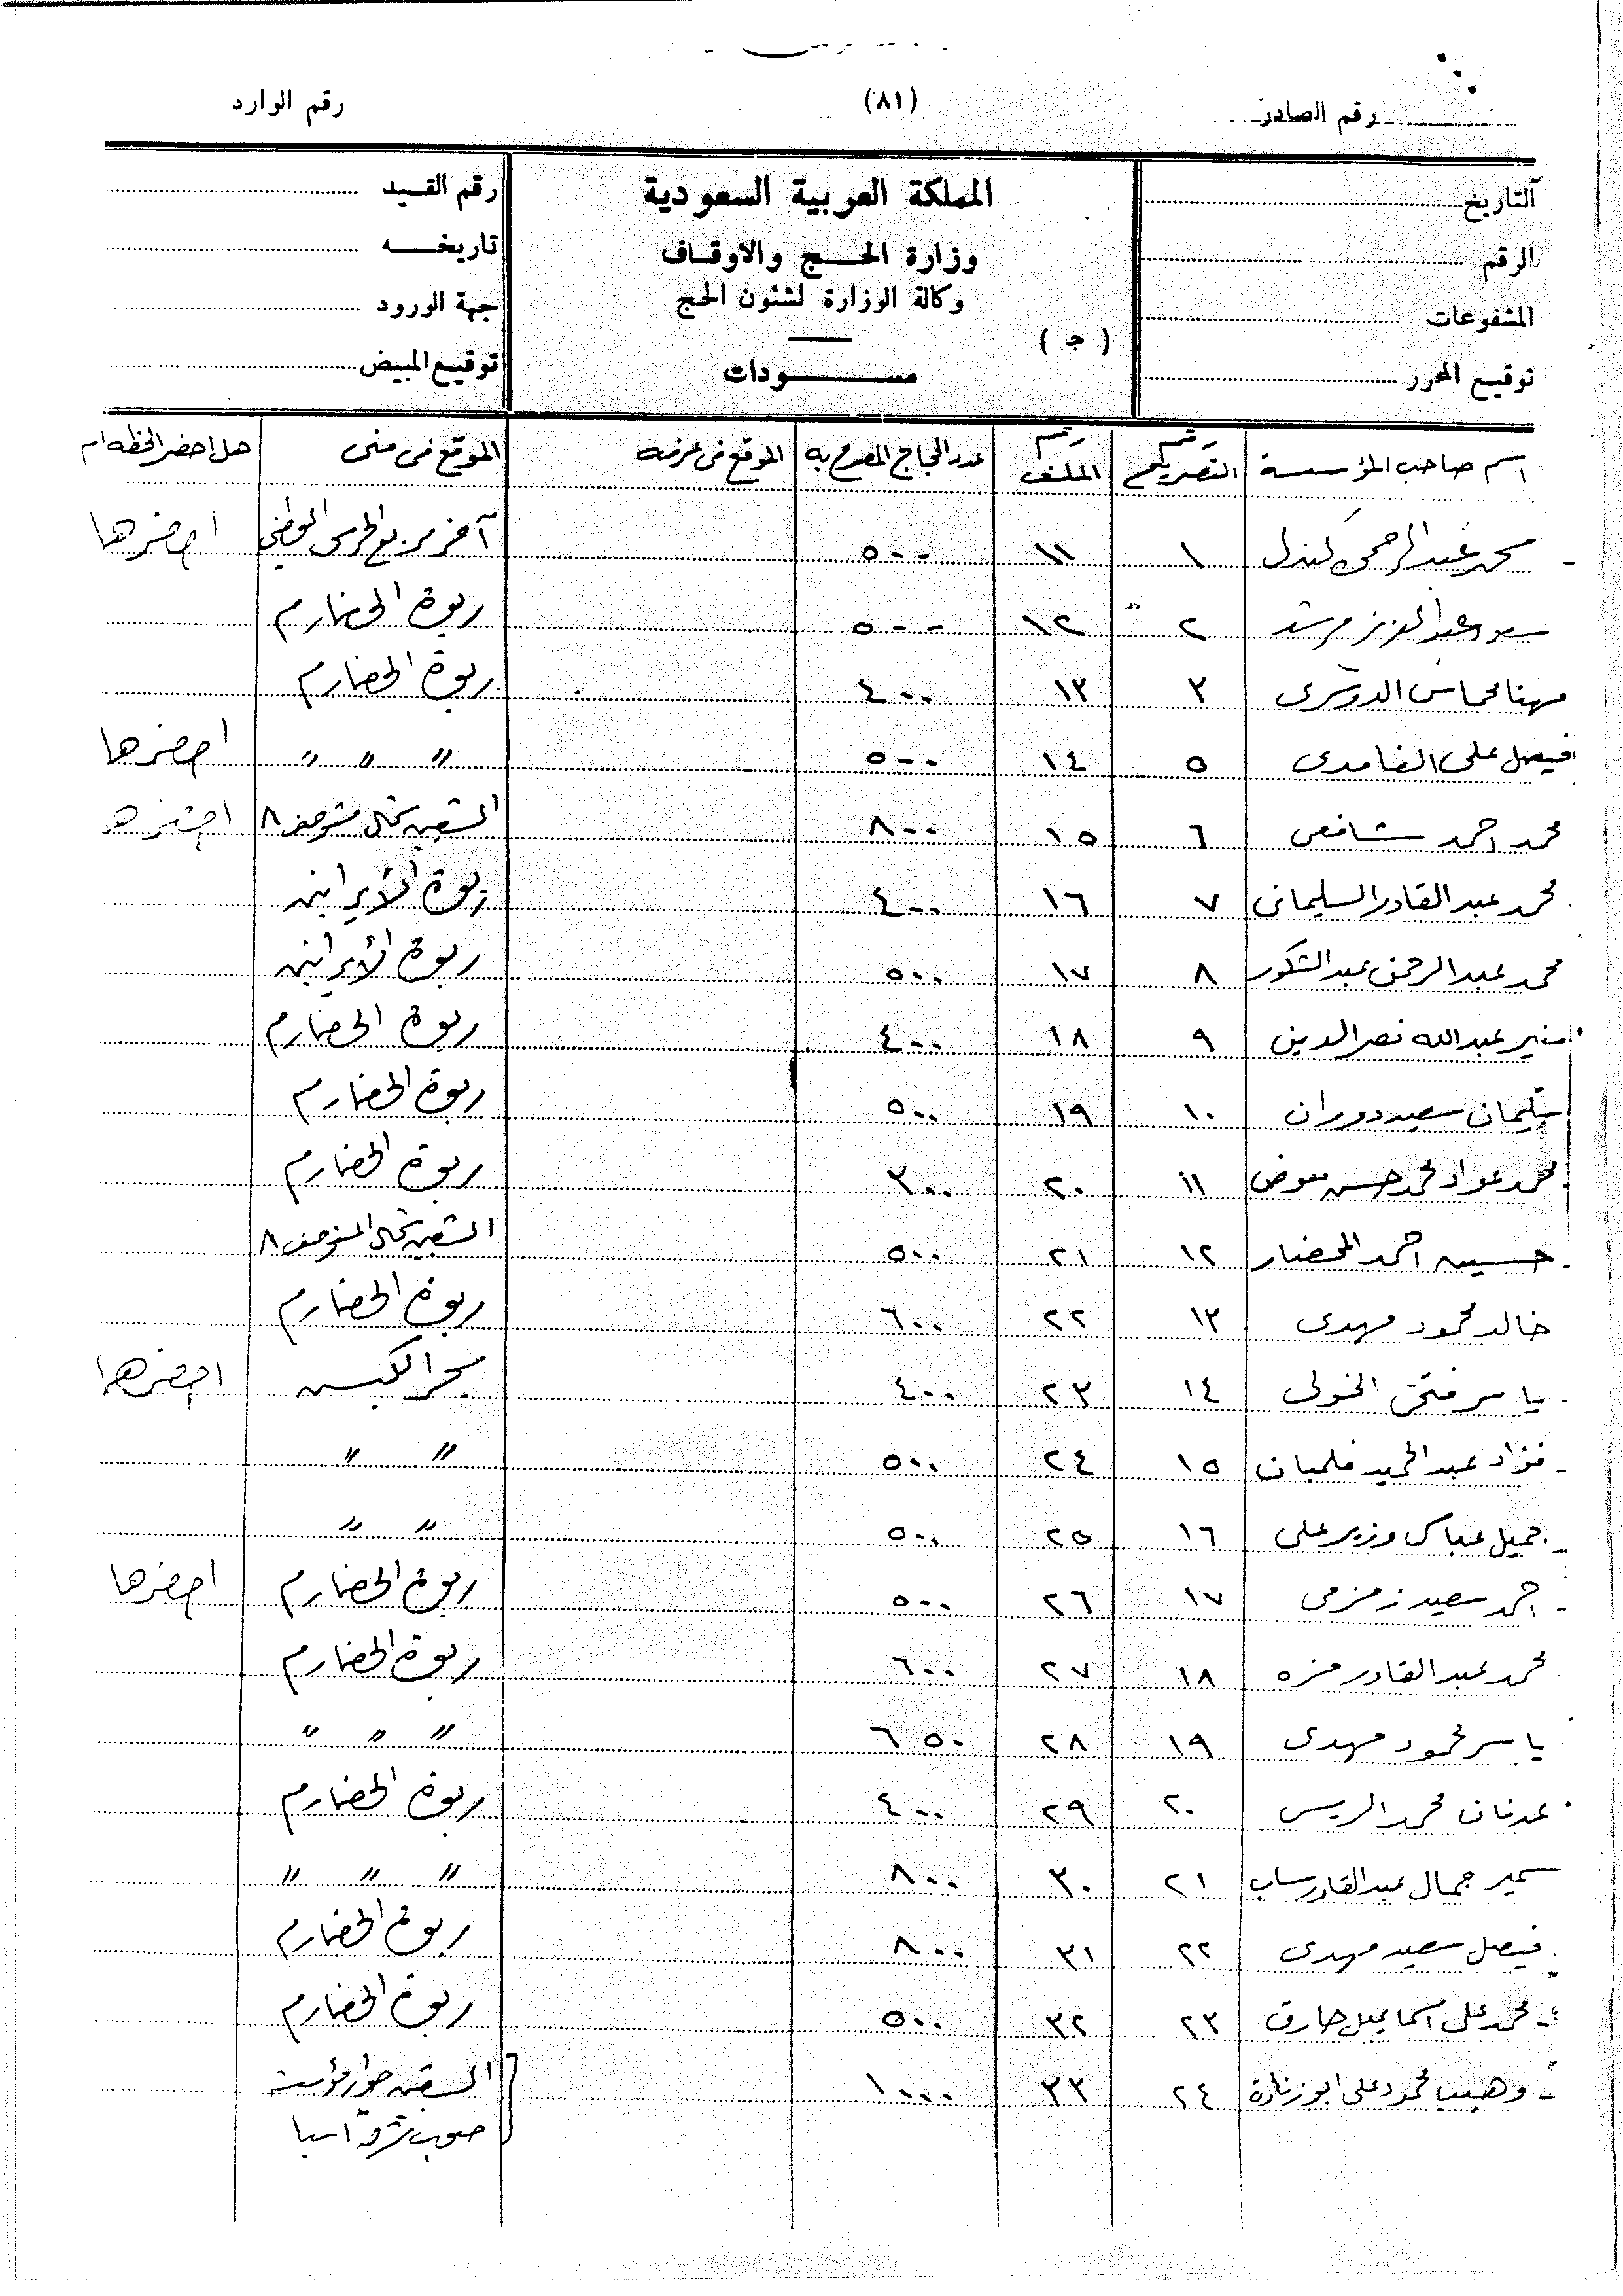 رقم الصادر (٨١) رقم الوارد
التاريخ المملكة العربية السعودية رقم القيد
الرقم وزارة الحج والاوقاف تاريخه
وكالة الوزارة لشئون الحج
المشفوعات جهة الورود
( ج )
توقيع المحرر مسودات توقيع المبيض
اسم صاحب المؤسسة رقم التصريح رقم الملف عدد الحجاج المصرح به الموقع في عرفه الموقع في منى هل احضر الخطه ام
محمد عبدالرحمن كندل ١ ١١ ٥٠٠ آخر مربع الحرس الوطني احضرها
سعود عبدالعزيز مرشد ٢ ١٢ ٥٠٠ ربوة الحضارم
مهنا محماس الدوسرى ٣ ١٣ ٤٠٠ ربوة الحضارم
فيصل على الغامدى ٥ ١٤ ٥٠٠ " " " احضرها
محمد احمد شافعى ٦ ١٥ ٨٠٠ ٨ احضرها
محمد عبد القادر السليمانى ٧ ١٦ ٤٠٠ ربوة الايرانيه
محمد عبد الرحمن عبد الشكور ٨ ١٧ ٥٠٠ ربوة الايرانيه
منير عبدالله نصرالدين ٩ ١٨ ٤٠٠ ربوة الحضارم
سليمان سعيد دوران ١٠ ١٩ ٥٠٠ ربوة الحضارم
محمد عواد محمد حسن معوض ١١ ٢٠ ٣٠٠ ربوة الحضارم
حسين احمد المحضار ١٢ ٢١ ٥٠٠ ٨
خالد محمود مهدى ١٣ ٢٢ ٦٠٠ ربوة الحضارم
ياسر فتحى الخولى ١٤ ٢٣ ٤٠٠ مجر الكبش احضرها
فؤاد عبد الحميد فلمبان ١٥ ٢٤ ٥٠٠ " "
جميل عباس وزير على ١٦ ٢٥ ٥٠٠ " "
احمد سعيد زمزمى ١٧ ٢٦ ٥٠٠ ربوة الحضارم احضرها
محمد عبد القادر مزه ١٨ ٢٧ ٦٠٠ ربوة الحضارم
ياسر محمود مهدى ١٩ ٢٨ ٦٥٠ " " "
عدنان محمد الريس ٢٠ ٢٩ ٤٠٠ ربوة الحضارم
سمير جمال عبدالقادر ساب ٢١ ٣٠ ٨٠٠ " " "
فيصل سعيد مهدى ٢٢ ٣١ ٨٠٠ ربوة الحضارم
محمد على اسماعيل حارق ٢٣ ٣٢ ٥٠٠ ربوة الحضارم
وهيب محمود على ابو زنادة ٢٤ ٣٣ ١٠٠٠ جوار مؤسسة
جنوب شرق آسيا